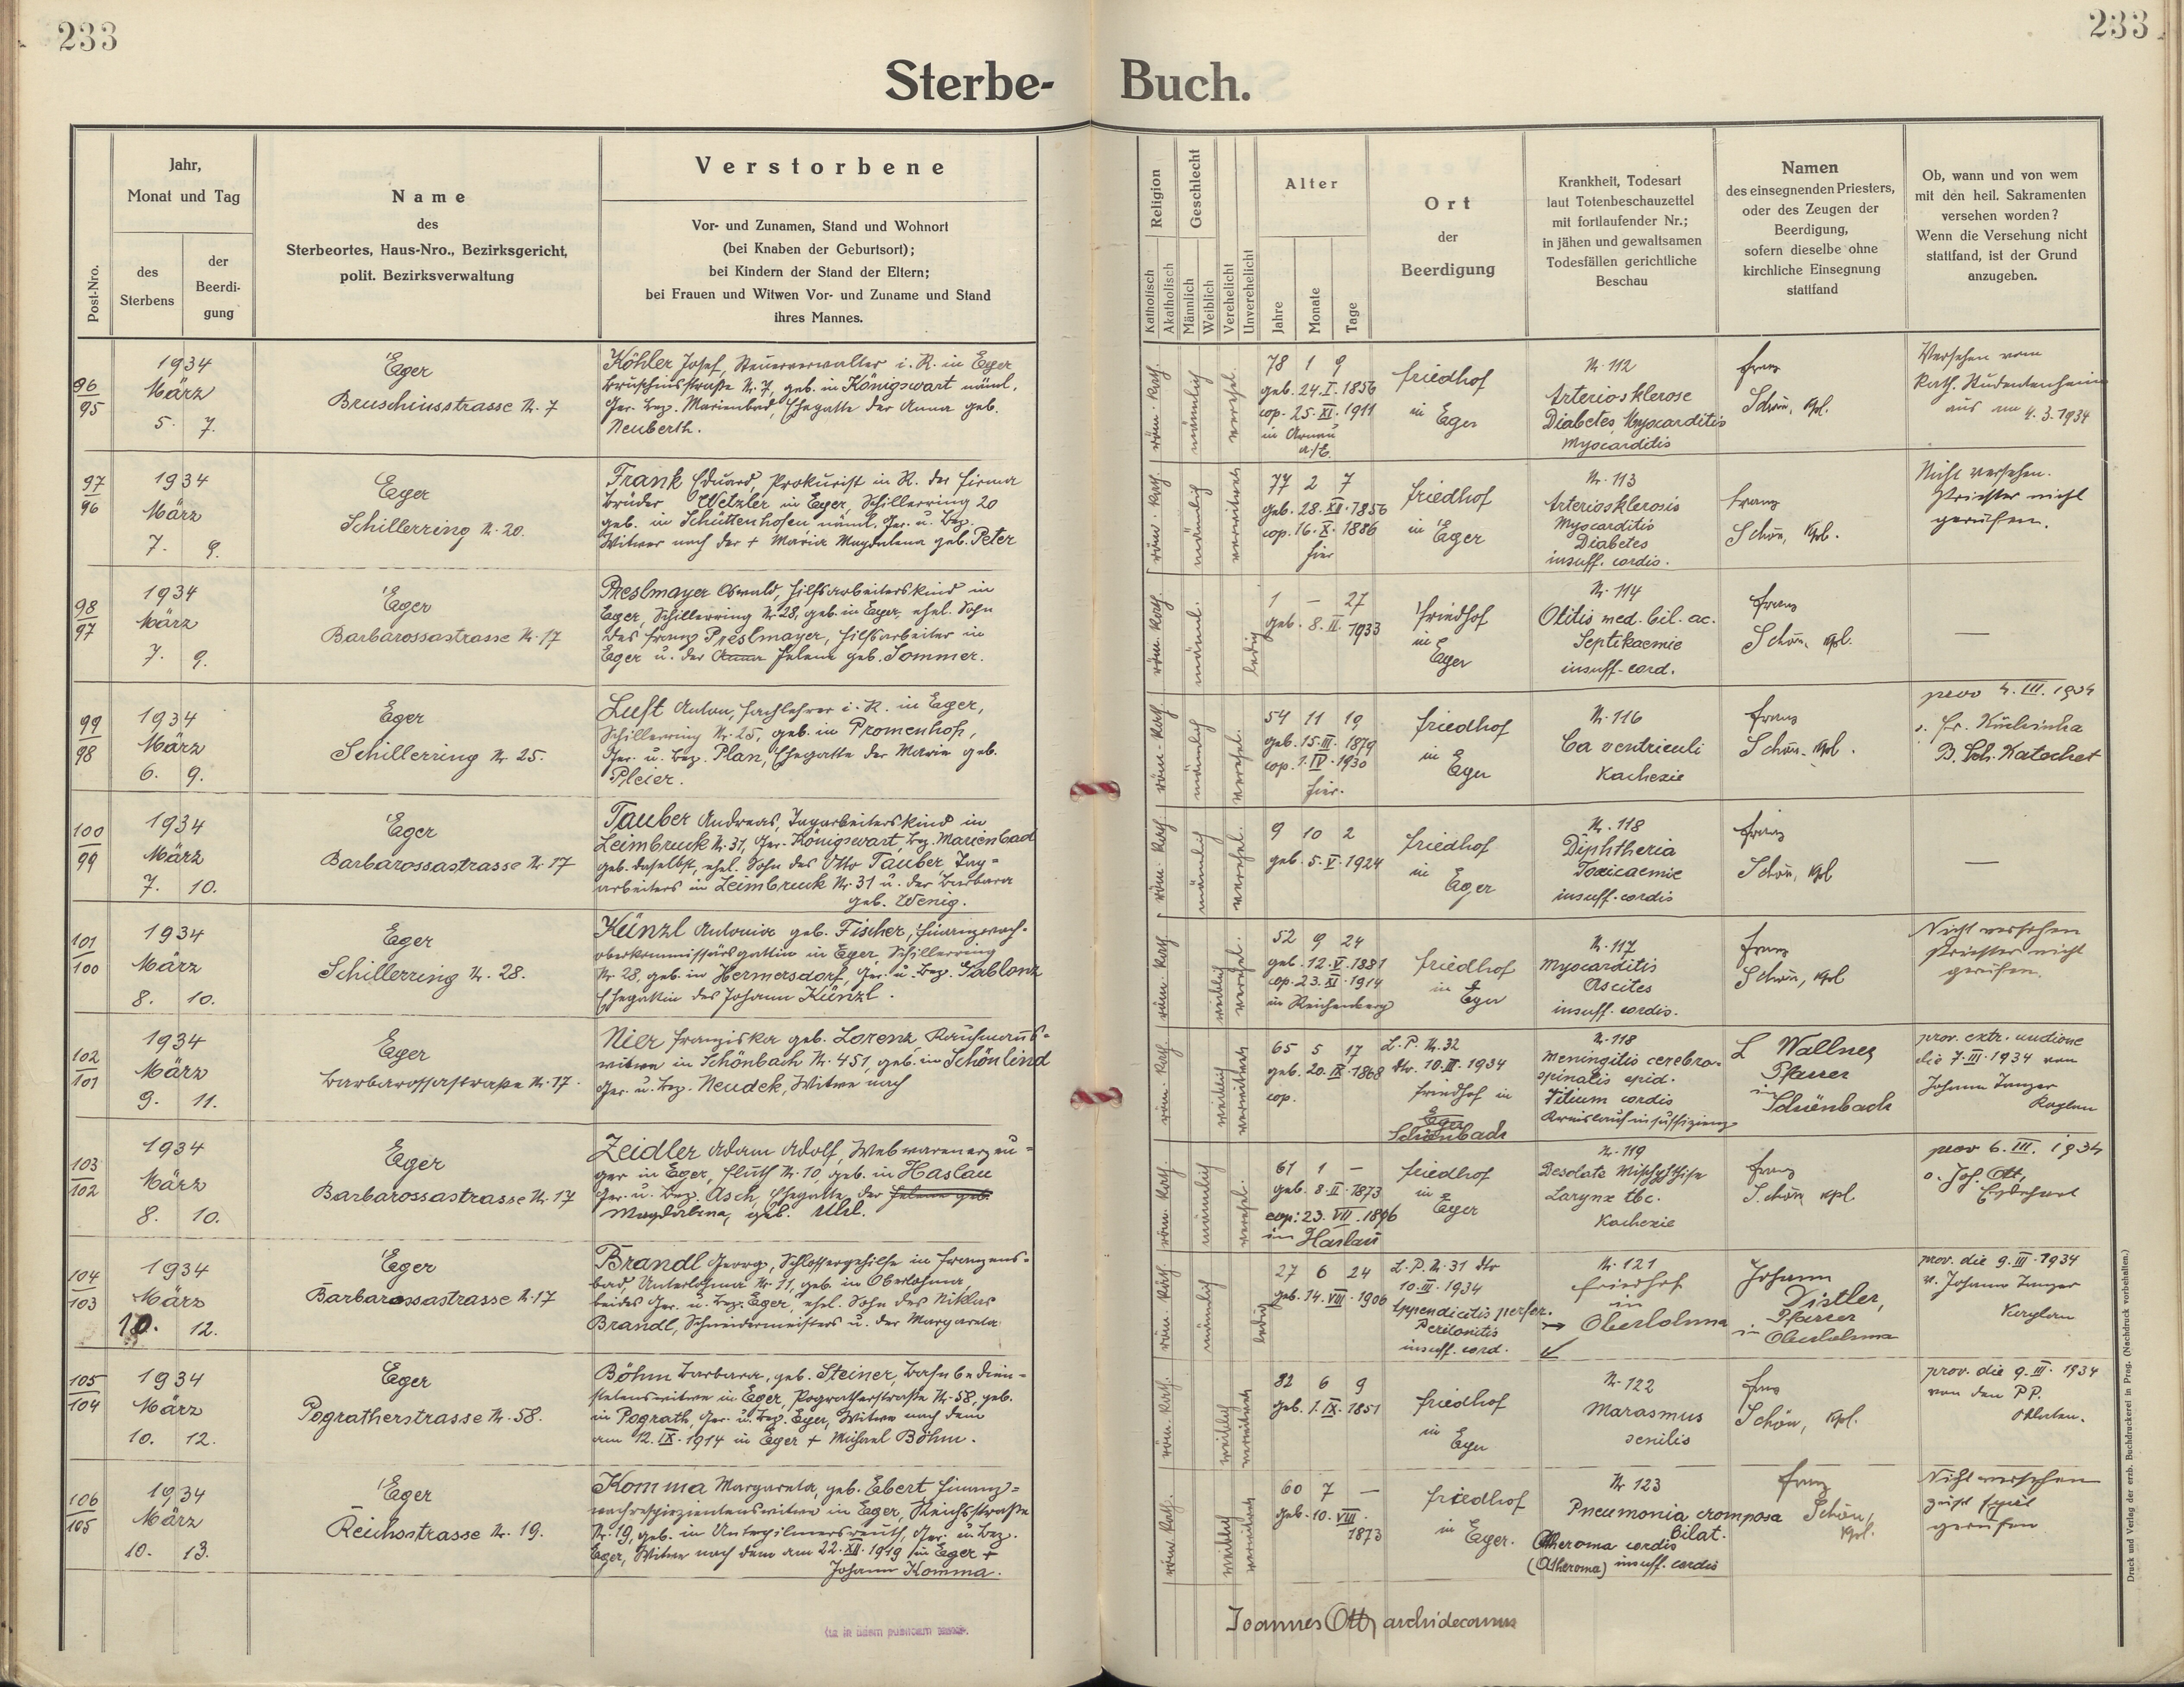 233
233
Sterbe- Buch.
Post-Nro.
Jahr,
Monat und Tag
des
Sterbens
der
Beerdi-
gung
Name
des
Sterbeortes, Haus-Nro., Bezirksgericht,
polit. Bezirksverwaltung
Verstorbene
Vor- und Zunamen, Stand und Wohnort
(bei Knaben der Geburtsort);
bei Kindern der Stand der Eltern;
bei Frauen und Witwen Vor- und Zuname und Stand
ihres Mannes.
Religion
Katholisch
Akatholisch
Geschlecht
Männlich
Weiblich
Verehelicht
Unverehelicht
Alter
Jahre
Monate
Tage
Ort
der
Beerdigung
Krankheit, Todesart
laut Totenbeschauzettel
mit fortlaufender Nr.;
in jähen und gewaltsamen
Todesfällen gerichtliche
Beschau
Namen
des einsegnenden Priesters,
oder des Zeugen der
Beerdigung,
sofern dieselbe ohne
kirchliche Einsegnung
stattfand
Ob, wann und von wem
mit den heil. Sakramenten
versehen worden?
Wenn die Versehung nicht
stattfand, ist der Grund
anzugeben.
96
95
1934
März
5. 7.
Eger
Bruschiusstrasse N. 7
Köhler Josef, Steuerverwalter i. R. in Eger
Bruschiusstraße N. 7, geb. in Königswart näml.
Ger. Bez. Marienbad, Ehegatte der Anna geb.
Neuberth.
röm. kath.
männlich
verehel.
78 1 9
geb. 24. I. 1856
cop. 25. XI. 1911
in Arnau
a./E.
Friedhof
in Eger
N. 112
Arteriosklerose
Diabetes Myocarditis
Myocarditis
Franz
Schön, Kpl.
Versehen vom
Kath. Studentenheim
aus am 4. 3. 1934
97
96
1934
März
7. 9.
Eger
Schillerring N. 20.
Frank Eduard, Prokurist in R. der Firma
Brüder Wetzler in Eger, Schillerring 20
geb. in Schüttenhofen näml. Ger. u. Bez.
Witwer nach der + Maria Magdalena geb. Peter
röm. kath.
männlich
verwitwet
77 2 7
geb. 28. XII. 1856
cop. 16. X. 1886
hier
Friedhof
in Eger
N. 113
Arteriosklerosis
Myocarditis
Diabetes
insuff. cordis.
Franz
Schön, Kpl.
Nicht versehen.
Priester nicht
gerufen.
98
97
1934
März
7. 9.
Eger
Barbarossastrasse N. 17
Preslmayer Oswald, Hilfsarbeiterskind in
Eger, Schillerring N. 28, geb. in Eger, ehel. Sohn
des Franz Preslmayer, Hilfsarbeiter in
Eger u. der Anna Helene geb. Sommer.
röm. kath.
männl.
ledig
1 — 27
geb. 8. II. 1933
Friedhof
in
Eger
N. 114
Otitis med. bil. ac.
Septikaemie
insuff. cord.
Franz
Schön, Kpl.
—
99
98
1934
März
6. 9.
Eger
Schillerring N. 25.
Luft Anton, Fachlehrer i. R. in Eger,
Schillerring Nr. 25, geb. in Promenhof,
Ger. u. Bez. Plan, Ehegatte der Marie geb.
Pleier.
röm. kath.
männlich
verehel.
54 11 19
geb. 15. III. 1879
cop. 1. IV. 1930
hier.
Friedhof
in
Eger
N. 116
Ca ventriculi
Kachexie
Franz
Schön, Kpl.
prov 4. III. 1934
B. Sch. Katechet
100
99
1934
März
7. 10.
Eger
Barbarossastrasse N. 17
Tauber Andreas, Tagarbeiterskind in
Leimbruck N. 31, Ger. Königswart, Bez. Marienbad
geb. daselbst, ehel. Sohn des Otto Tauber Tag=
arbeiters in Leimbruck Nr. 31 u. der Barbara
geb. Wenig.
röm. kath.
männlich
verehel.
9 10 2
geb. 5. V. 1924
Friedhof
in
Eger
N. 118
Diphtheria
Toxicaemie
insuff. cordis
Franz
Schön, Kpl
—
101
100
1934
März
8. 10.
Eger
Schillerring N. 28.
Künzl Antonia geb. Fischer, Finanzwach-
oberkommissärsgattin in Eger, Schillerring
Nr. 28, geb. in Hermersdorf, Ger. u. Bez. Gablonz
Ehegattin des Johann Künzl.
röm. kath.
weiblich
verehel.
52 9 24
geb. 12. V. 1881
cop. 23. XI. 1914
in Reichenberg
Friedhof
in Eger
N. 117
Myocarditis
Ascites
insuff. cordis.
Franz
Schön, Kpl
Nicht versehen
Priester nicht
gerufen.
102
101
1934
März
9. 11.
Eger
Barbarossastraße N. 17.
Nier Franziska geb. Lorenz, Kaufmanns-
witwe in Schönbach N. 451, geb. in Schönlind
Ger. u. Bez. Neudek, Witwe nach
röm. kath.
weiblich
verwitwet
65 5 17
geb. 20. IX. 1868
cop.
L. P. N. 32
dto. 10. III. 1934
Friedhof in
Eger
Schönbach
N. 118
Meningitis cerebro-
spinalis epid.
Vitium cordis
Kreislaufinsuffizienz
L Wallner
Pfarrer
in
Schönbach
prov. extr. unctione
die 7. III. 1934 von
Johann Tanzer
Kaplan
103
102
1934
März
8. 10.
Eger
Barbarossastrasse N. 17
Zeidler Adam Adolf, Webwarenerzeu=
ger in Eger, Fluth N. 10, geb. in Haslau
Ger. u. Bez. Asch, Ehegatte der Helene geb.
Magdalena, geb. Uhl.
röm. kath.
männlich
verehel.
61 1 —
geb. 8. II. 1873
cop: 23. VII. 1896
in Haslau
Friedhof
in
Eger
N. 119
Desolate
Larynx tbc.
Kachexie
Franz
Schön, Kpl
prov 6. III. 1934
Joh. Ott,
Erzdechant
104
103
1934
März
10. 12.
Eger
Barbarossastrasse N. 17
Brandl Georg, Schlossergehilfe in Franzens-
bad, Unterlohma Nr. 11, geb. in Oberlohma,
beides Ger. u. Bez. Eger, ehel. Sohn des Niklas
Brandl, Schneidermeisters u. der Margareta
röm. kath.
männlich
ledig
27 6 24
geb. 14. VIII. 1906
L. P. N. 31 dto
10. III. 1934
Appendicitis perfor.
Peritonitis
insuff. cord.
N. 121
Friedhof
in
→ Oberlohma
Johann
Distler,
Pfarrer
in Oberlohma
prov. die 9. III. 1934
v. Johann Tanzer
Kaplan
105
104
1934
März
10. 12.
Eger
Pogratherstrasse N. 58.
Böhm Barbara, geb. Steiner, Bahnbedien-
stetenswitwe in Eger, Pogratherstraße N. 58, geb.
in Pograth, Ger. u. Bez. Eger, Witwe nach dem
am 12. IX. 1914 in Eger + Michael Böhm.
röm. kath.
weiblich
verwitwet
82 6 9
geb. 1. IX. 1851
Friedhof
in
Eger
N. 122
Marasmus
senilis
Franz
Schön, Kpl.
prov. die 9. III. 1934
von den PP.
106
105
1934
März
10. 13.
Eger
Reichsstrasse N. 19.
Komma Margareta, geb. Ebert Finanz=
wachrespizientenswitwe in Eger, Reichsstraße
Nr. 19, geb. in Unterpilmersreuth, Ger. u. Bez.
Eger, Witwe nach dem am 22. XII. 1919 in Eger +
Johann Komma.
röm. kath.
weiblich
verwitwet
60 7 —
geb. 10. VIII.
1873
Friedhof
in
Eger.
N. 123
Pneumonia cromposa
bilat.
Atheroma cordis
(Atheroma) insuff. cordis
Franz
Schön,
Kpl.
Nicht versehen
zu spät
gerufen
Joannes Ott, archidecanus
Druck und Verlag der erzb. Buchdruckerei in Prag. (Nachdruck vorbehalten.)